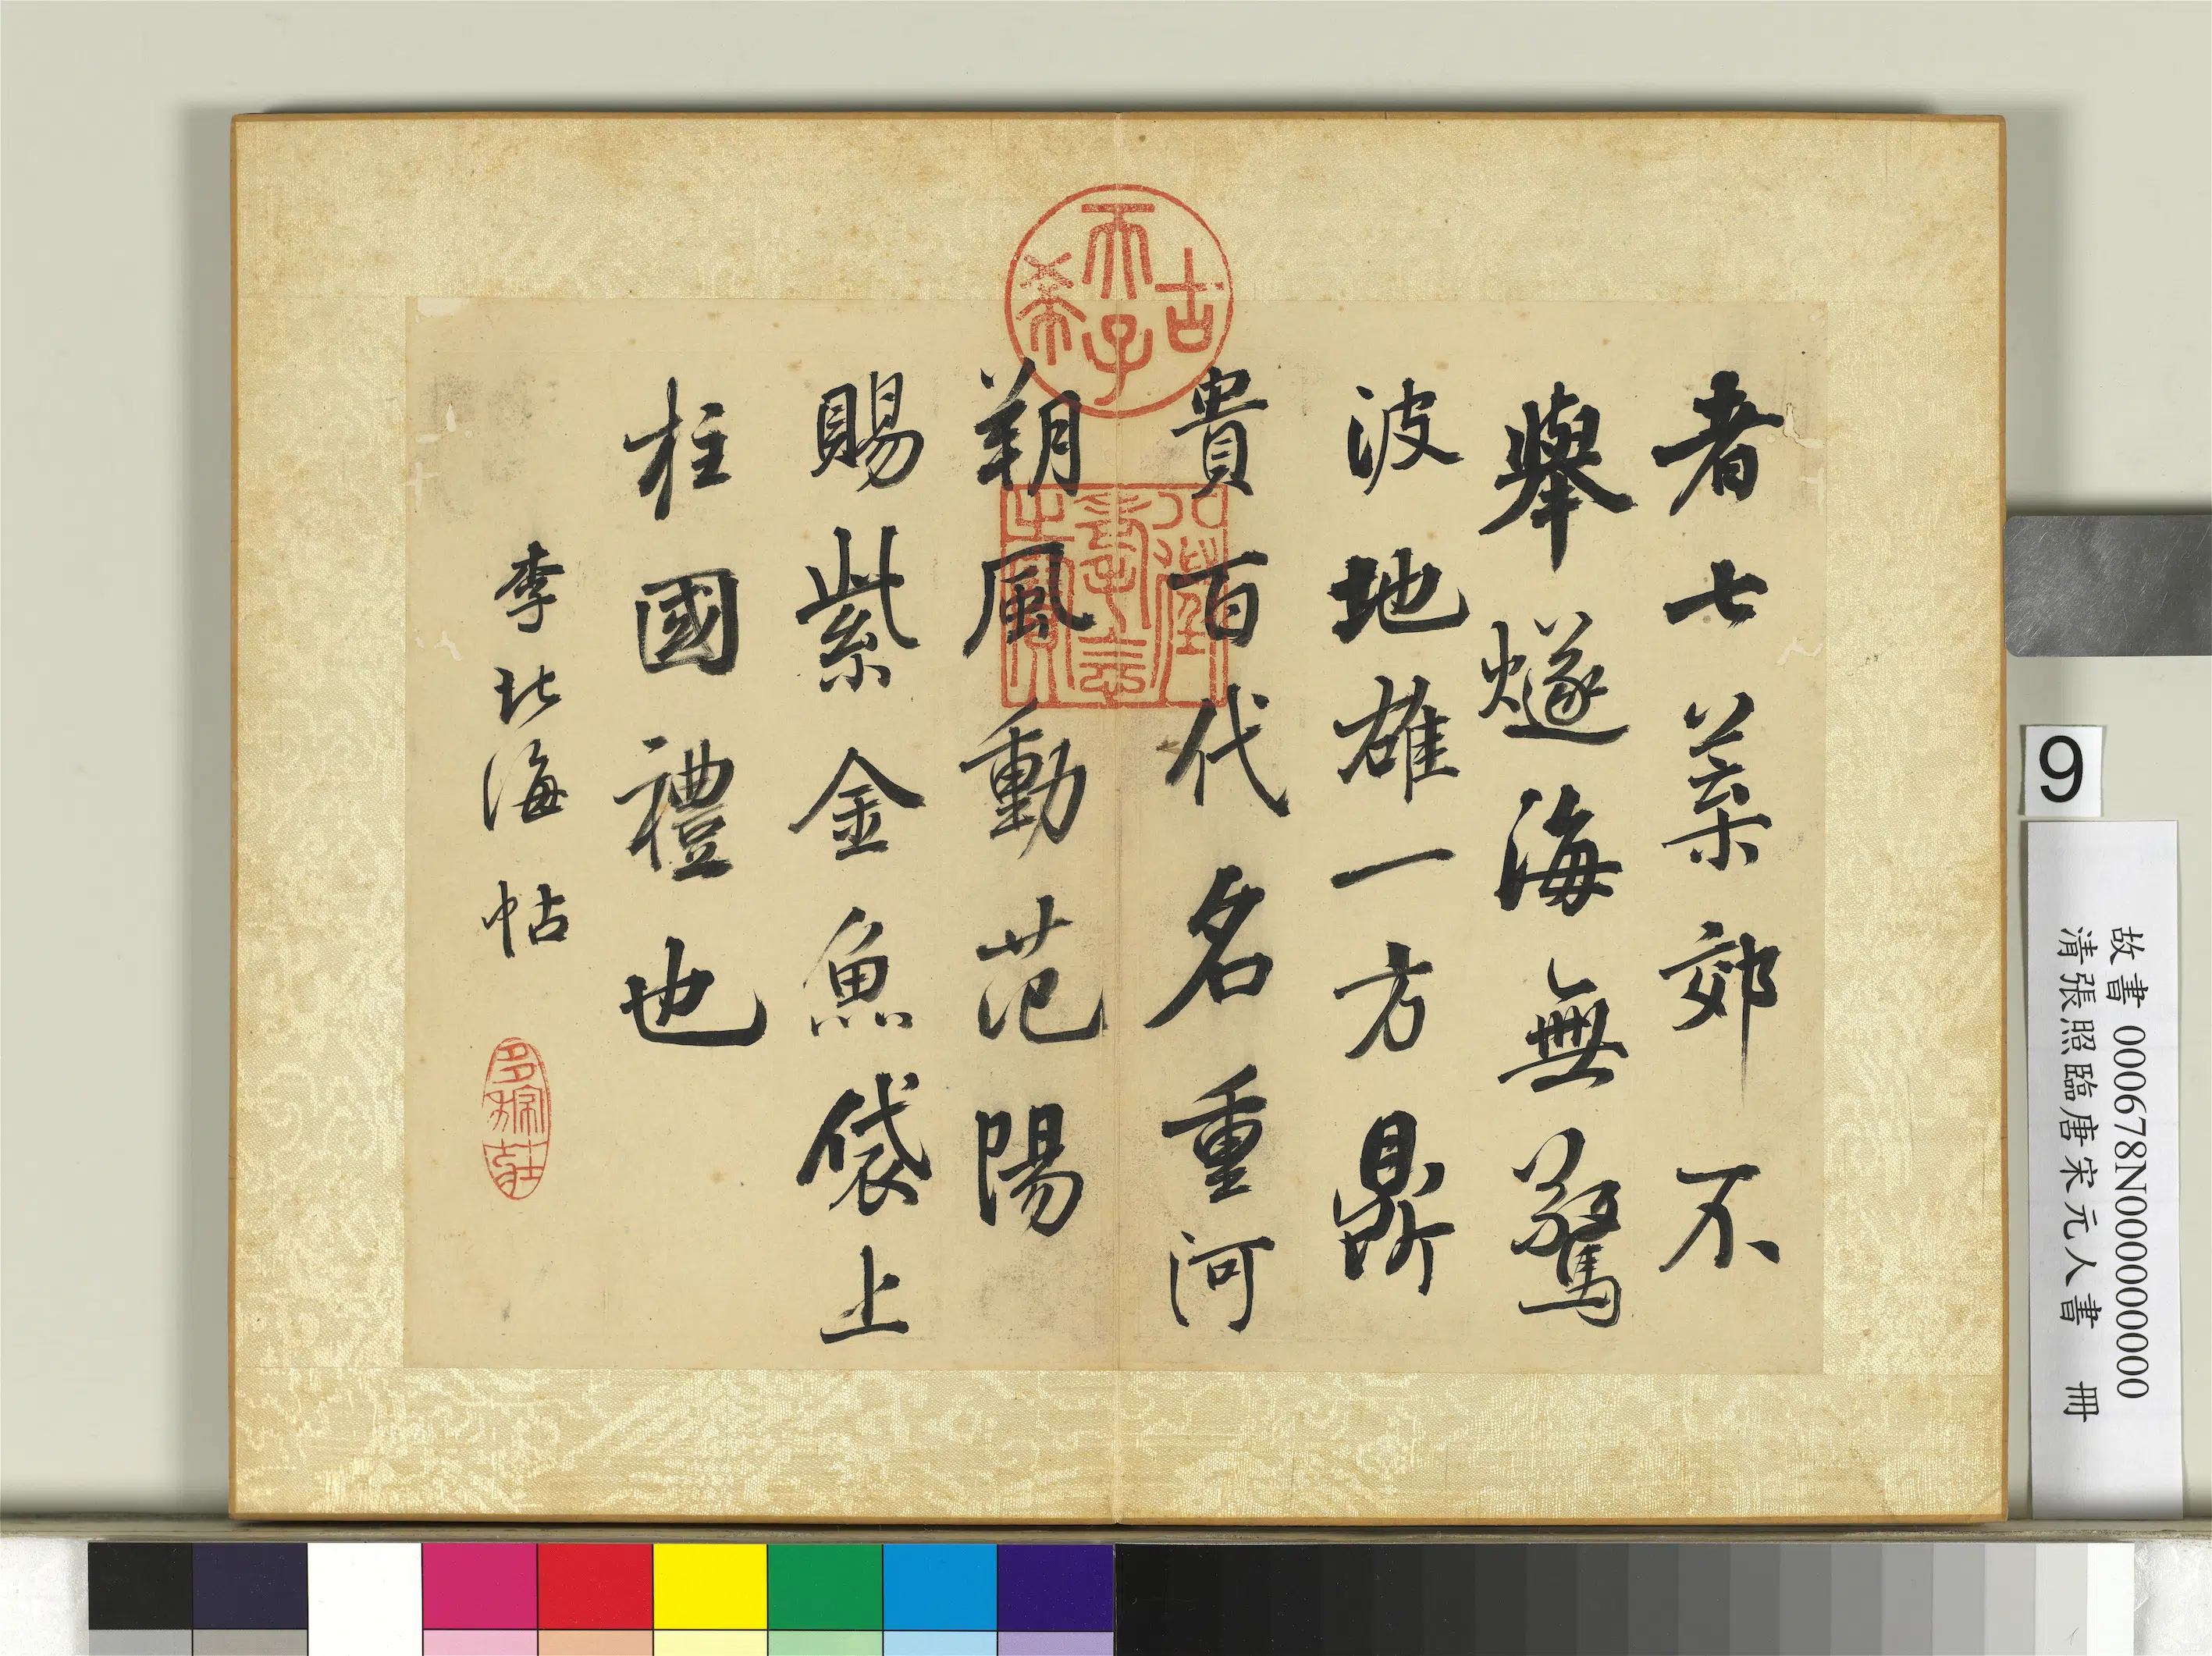 者七葉郊不
舉燧海無驚
波地雄一方鼎
貴百代名重河
朔風動范陽
賜紫金魚袋上
柱國禮也
李北海帖
古
天子
希
八徵
耄念
之寶
9
故書 000678N000000000
清張照臨唐宋元人書 冊